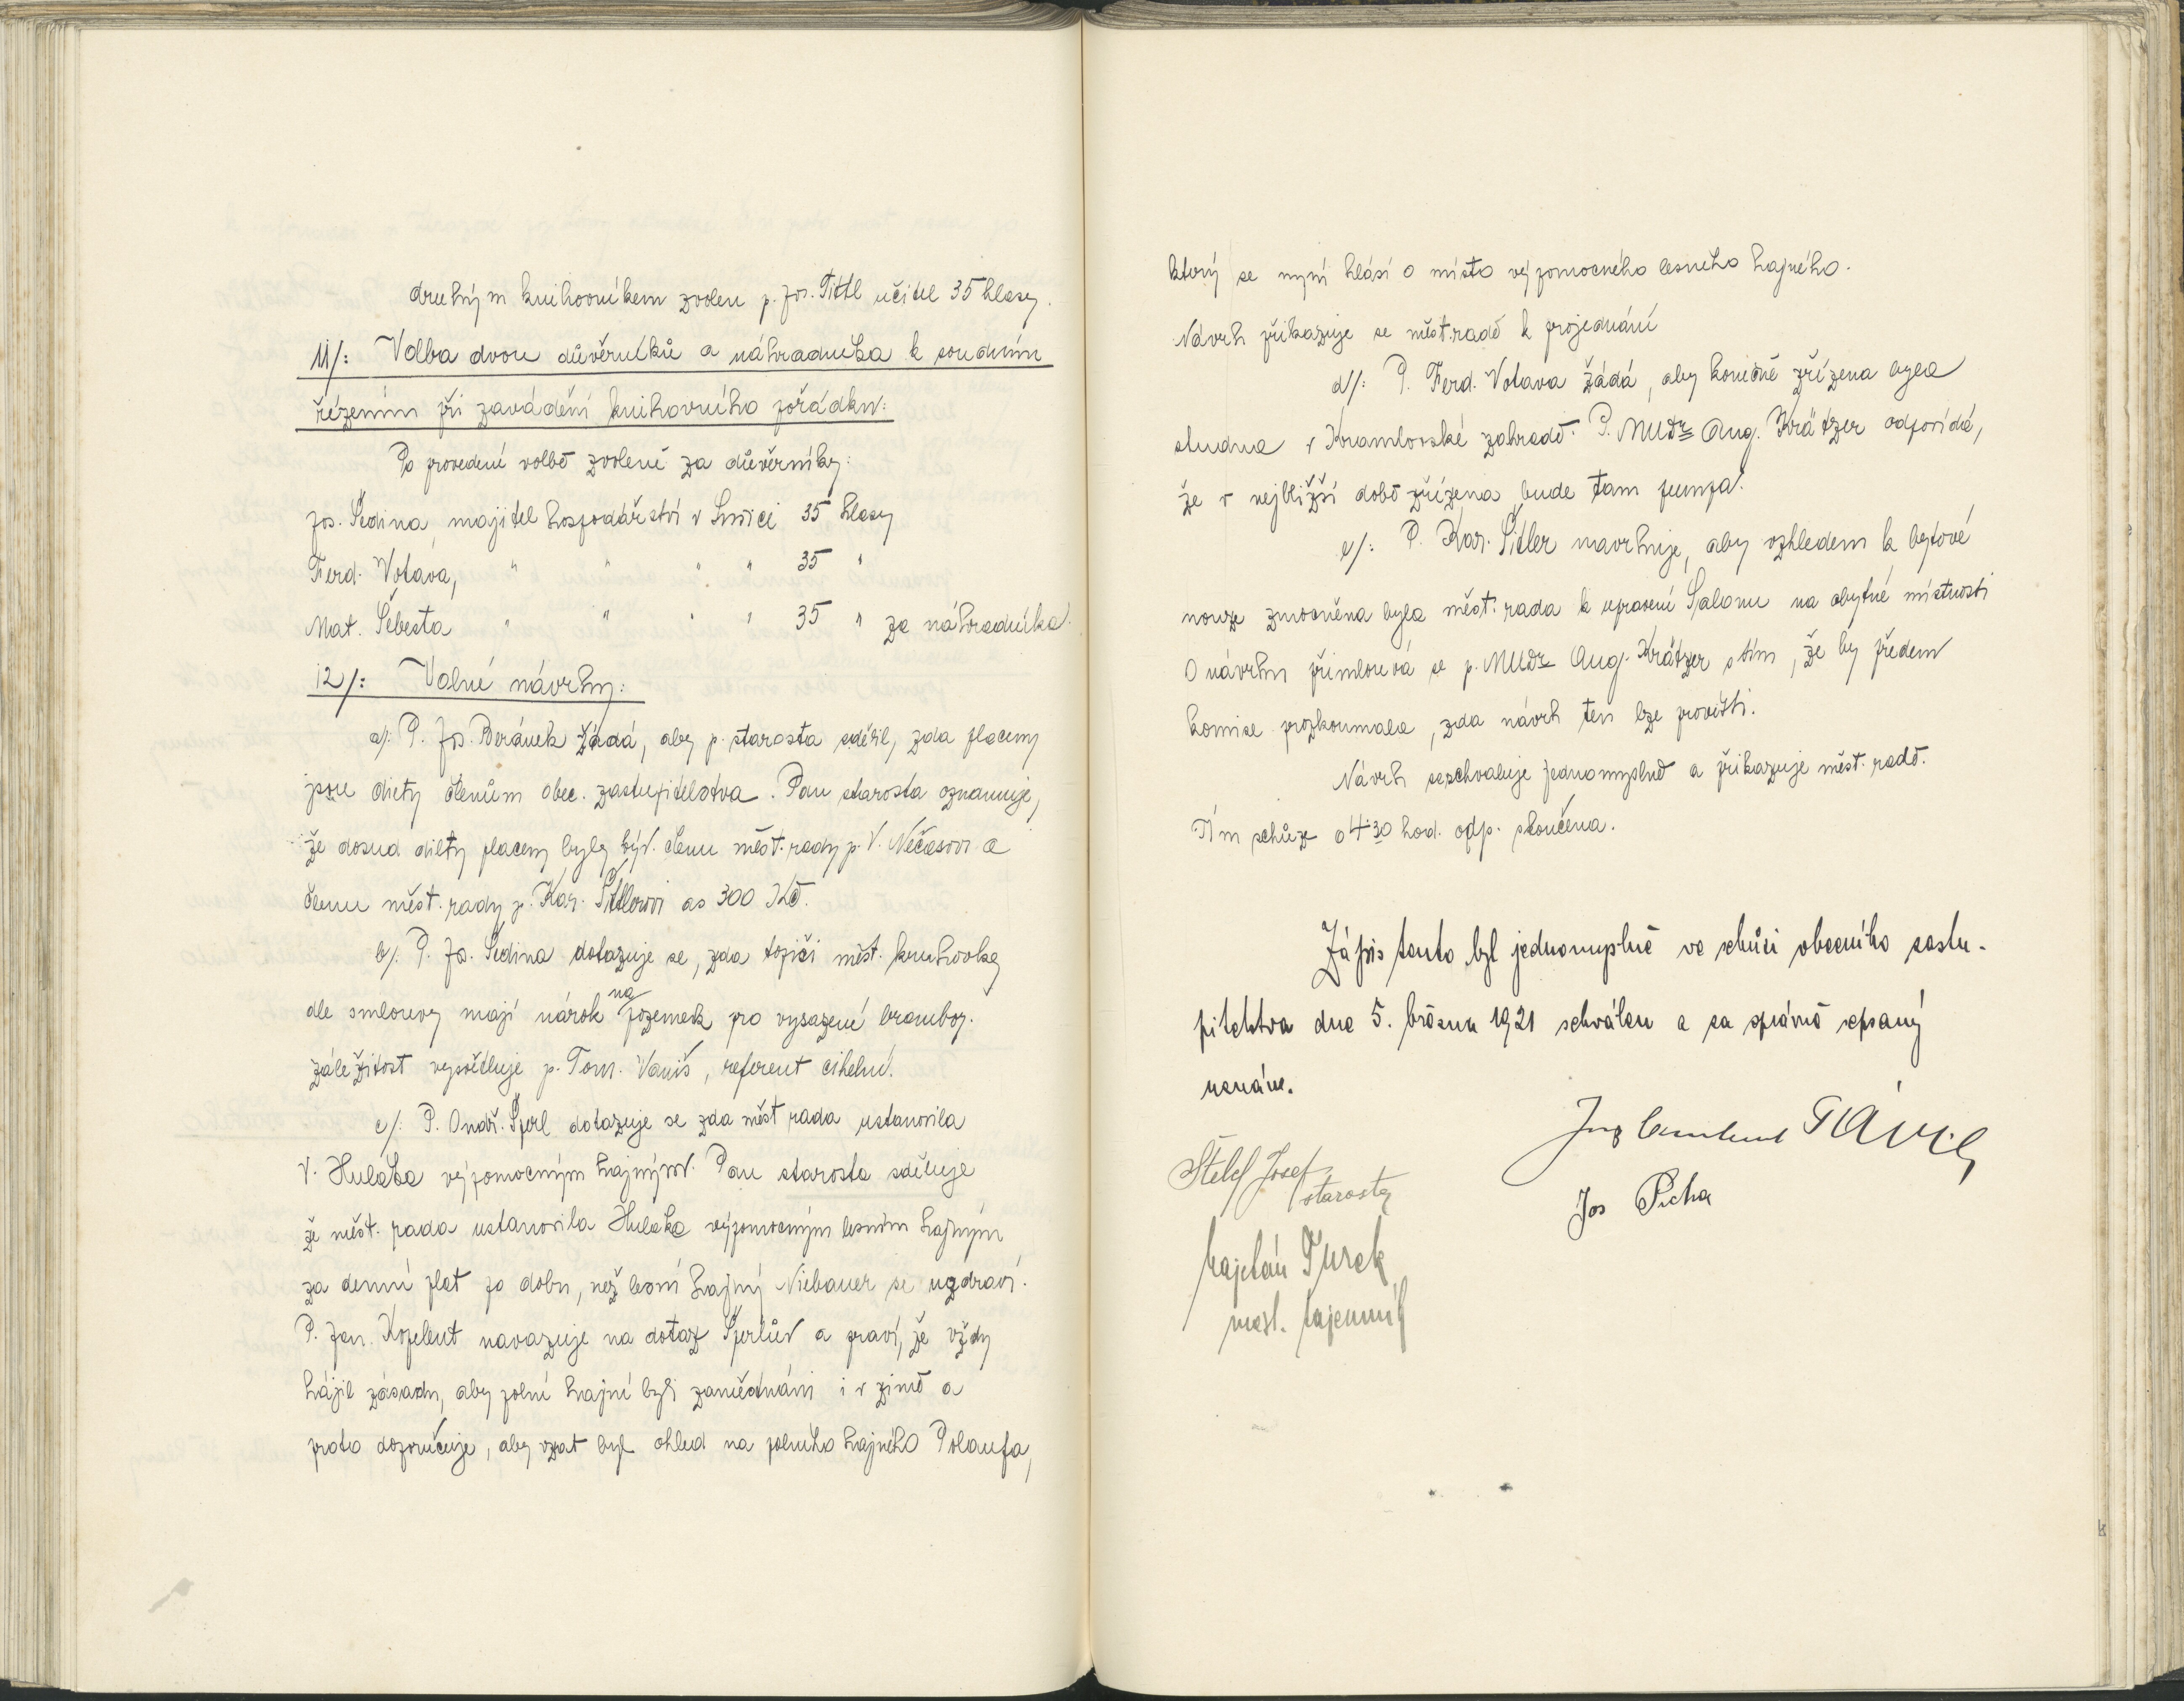 druhým knihovníkem zvolen p. Jos. Tittl učitel 35 hlasy.
11/: Volba dvou důvěrníků a náhradníka k soudním
řízením při zavádění knihovního pořádku:
Po provedené volbě zvoleni za důvěrníky:
Jos. Šedina, majitel hospodářství v 35 hlasy
Ferd. Votava, " " " " 35 "
Mat. Šebesta " " " " 35 " za náhradníka.
12/: Volné návrhy:
a/: P. Jos. Beránek žádá, aby p. starosta sdělil, zda placeny
jsou diety členům obec. zastupitelstva. Pan starosta oznamuje,
že dosud diety placeny byly býv. členu měst. rady p. V. Nečasovi a
členu měst. rady p. Kar. Šitlerovi as 300 Kč.
b/. P. Jos. Šedina dotazuje se, zda topiči měst. kruhovky
dle smlouvy mají nárok na pozemek pro vysazení brambor.
záležitost vysvětluje p. Tom. Vaniš, referent cihelní.
c/: P. Ondř. Šperl dotazuje se zda měst rada ustanovila
V. Huláka výpomocným hajným. Pan starosta sděluje
že měst. rada ustanovila Huláka výpomocným lesním hajným
za denní plat po dobu, než lesní hajný Niebauer se uzdraví.
P. Jan. Kopelent navazuje na dotaz Šperlův a praví, že vždy
hájil zásadu, aby polní hajní byli zaměstnáni i v zimě a
proto doporučuje, aby vzat byl ohled na polního hajného Polaufa,
který se nyní hlásí o místo výpomocného lesního hajného.
Návrh přikazuje se měst.radě k projednání
d/: P. Ferd. Votava žádá, aby konečně zřízena byla
studna v Kramlovské zahradě. P. MUDr Aug. Krätzer odpovídá,
že v nejbližší době zřízena bude tam pumpa.
e/: P. Kar. Šitler navrhuje, aby vzhledem k bytové
nouze zmocněna byla měst. rada k upravení Salonu na obytné místnosti
O návrhu přimlouvá se p. MUDr Aug. Krätzer s tím, že by předem
komise prozkoumala, zda návrh ten lze provésti.
Návrh se schvaluje jednomyslně a přikazuje měst. radě.
Tím schůze o 4.30 hod. odp. skončena.
Zápis tento byl jednomyslně ve schůzi obecního zastu-
pitelstva dne 5. března 1921 schválen a za správně sepsaný
uznán.
Ing
Josef
starosta
Jos Pícha
Kajetán Turek
měst. tajemník